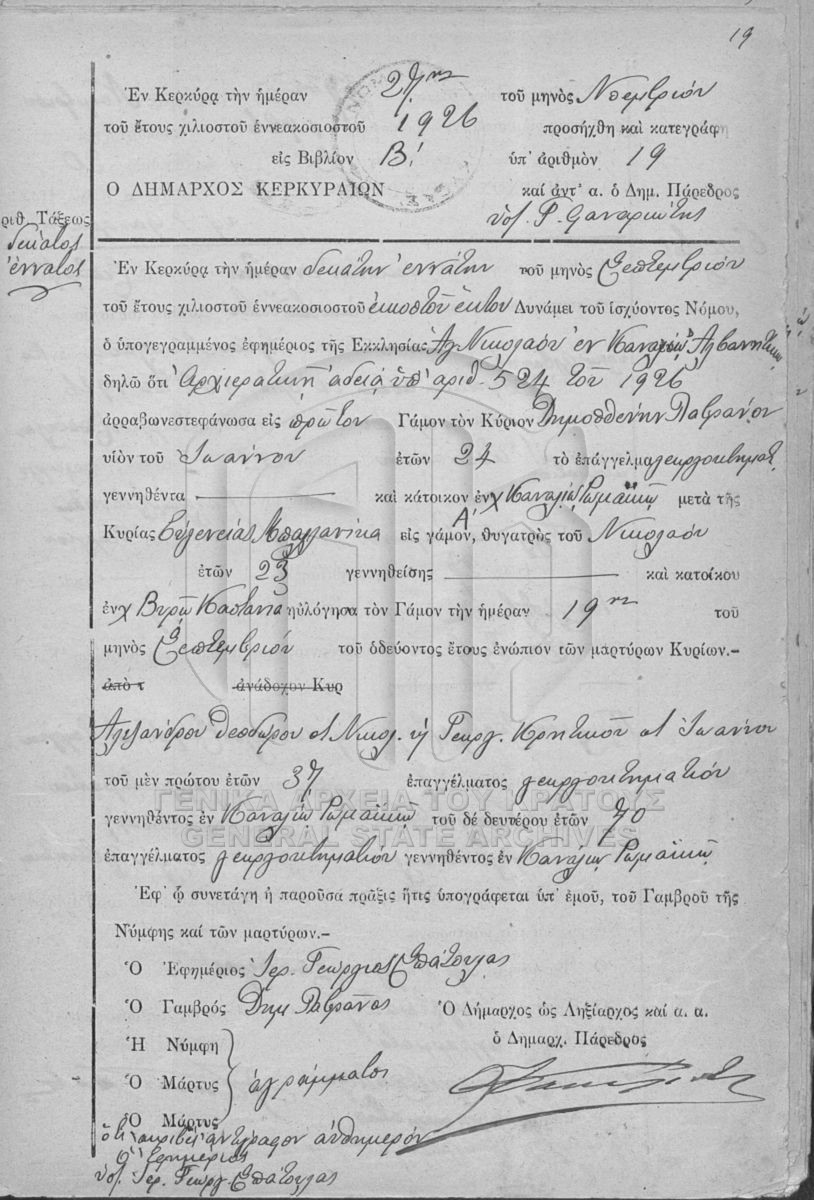 19
Ἐν Κερκύρᾳ τὴν ἡμέραν 27ην τοῦ μηνὸς Νοεμβρίου
τοῦ ἔτους χιλιοστοῦ ἐννεακοσιοστοῦ 1926 προσήχθη καὶ κατεγράφη
εἰς Βιβλίον Β! ὑπ' ἀριθμὸν 19
Ο ΔΗΜΑΡΧΟΣ ΚΕΡΚΥΡΑΙΩΝ καί ἀντ' α. ὁ Δημ. Πάρεδρος
ὑπ. Γ.
ριθ. Τάξεως
δεκάτος
ἔννατος
Ἐν Κερκύρᾳ τὴν ἡμέραν δεκάτην ἐννάτην τοῦ μηνὸς Σεπτεμβρίου
τοῦ ἔτους χιλιοστοῦ ἐννεακοσιοστοῦ εἰκοστοῦ ἕκτου Δυνάμει τοῦ ἰσχύοντος Νόμου,
ὁ ὑπογεγραμμένος ἐφημέριος τῆς Ἐκκλησίας Ἁγ Νικολάου ἐν Καναλίῳ
δηλῶ ὅτι Ἀρχιερατικῇ ἀδείᾳ ὑπ' ἀριθ. 524 τοῦ 1926
ἀρραβωνεστεφάνωσα εἰς πρῶτον Γάμον τὸν Κύριον Δημοσθένην Πατρῶνον
υἱὸν τοῦ Ἰωάννου ἐτῶν 24 τὸ ἐπάγγελμα γεωργοκτηματ
γεννηθέντα καὶ κάτοικον ἐν χ Καναλίῳ Ρωμαϊκῷ μετὰ τῆς
Κυρίας Εὐγενείας εἰς Α' γάμον, θυγατρὸς τοῦ Νικολάου
ἐτῶν 23 γεννηθείσης καὶ κατοίκου
ἐν χ Βυρῷ Καστανιᾳ ηὐλόγησα τὸν Γάμον τὴν ἡμέραν 19ην τοῦ
μηνὸς Σεπτεμβρίου τοῦ ὁδεύοντος ἔτους ἐνώπιον τῶν μαρτύρων Κυρίων.-
ἀπὸ τ ἀνάδοχον Κυρ
Ἀλεξάνδρου Θεοδώρου τ Νικολ. ἢ Γεωργ. Κρητικοῦ τ Ἰωάννου
τοῦ μὲν πρώτου ἐτῶν 37 ἐπαγγέλματος γεωργοκτηματίου
γεννηθέντος ἐν Καναλίῳ Ρωμαϊκῷ τοῦ δέ δευτέρου ἐτῶν 70
ἐπαγγέλματος γεωργοκτηματίου γεννηθέντος ἐν Καναλίῳ Ρωμαϊκῷ
Ἐφ' ᾧ συνετάγη ἡ παροῦσα πρᾶξις ἥτις ὑπογράφεται ὑπ' ἐμοῦ, τοῦ Γαμβροῦ τῆς
Νύμφης καί τῶν μαρτύρων.-
Ὁ Ἐφημέριος Ἱερ. Γεώργιος Σπάτουλας
Ὁ Γαμβρός Δημ Πατρῶνος Ὁ Δήμαρχος ὡς Ληξίαρχος καί α. α.
ὁ Δημαρχ. Πάρεδρος
Ἡ Νύμφη
Ὁ Μάρτυς ἀγράμματοι
Ὁ Μάρτυς
ὅτι ἀκριβὲς ἀντίγραφον αὐθημερόν
Ὁ Ἐφημέριος
ὑπ. Ἱερ. Γεωργ. Σπάτουλας
ΓΕΝΙΚΑ ΑΡΧΕΙΑ ΤΟΥ ΚΡΑΤΟΥΣ
GENERAL STATE ARCHIVES